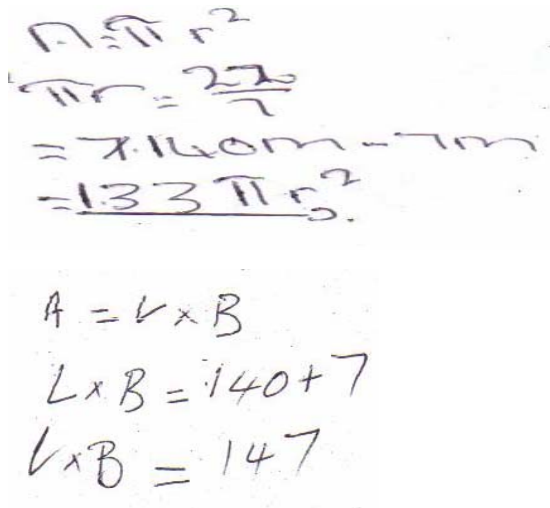 A = π r²
πr = 22/7
= 7.140m - 7m
= 133 π r².
A = L × B
L × B = 140 + 7
L × B = 147